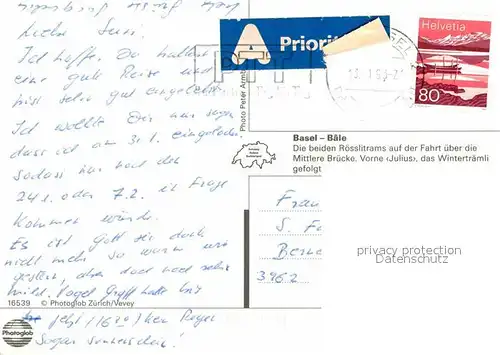 Liebe Susi.
Ich hoffe, Du hattest
eine gute Reise und
bist sehr gut
Ich wollte Dir nur sagen
dass ich am 31.1. eingeladen
sodass nur noch der
24.1. oder 7.2. in Frage
kommen würde.
Es ist Gott sei dank
nicht mehr so warm wie
gestern, aber doch noch sehr
mild. Vogel Gryff hatte bis
jetzt (16 30) kein Regen
Sogar Sonnenschein!
16539 © Photoglob Zürich/Vevey
Photoglob
A Priorit
PTT
Helvetia
80
Photo Peter Armb
Basel – Bâle
Die beiden Rösslitrams auf der Fahrt über die
Mittlere Brücke. Vorne ‹Julius›, das Winterträmli
gefolgt
Frau
S. Fa
Berne
3962
privacy protection
Datenschutz